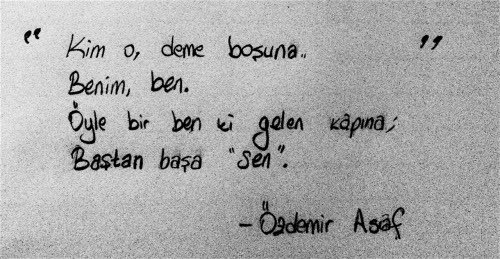 “ Kim o, deme boşuna.. ”
Benim, ben.
Öyle bir ben ki gelen kapına;
Baştan başa “Sen”.
- Özdemir Asaf